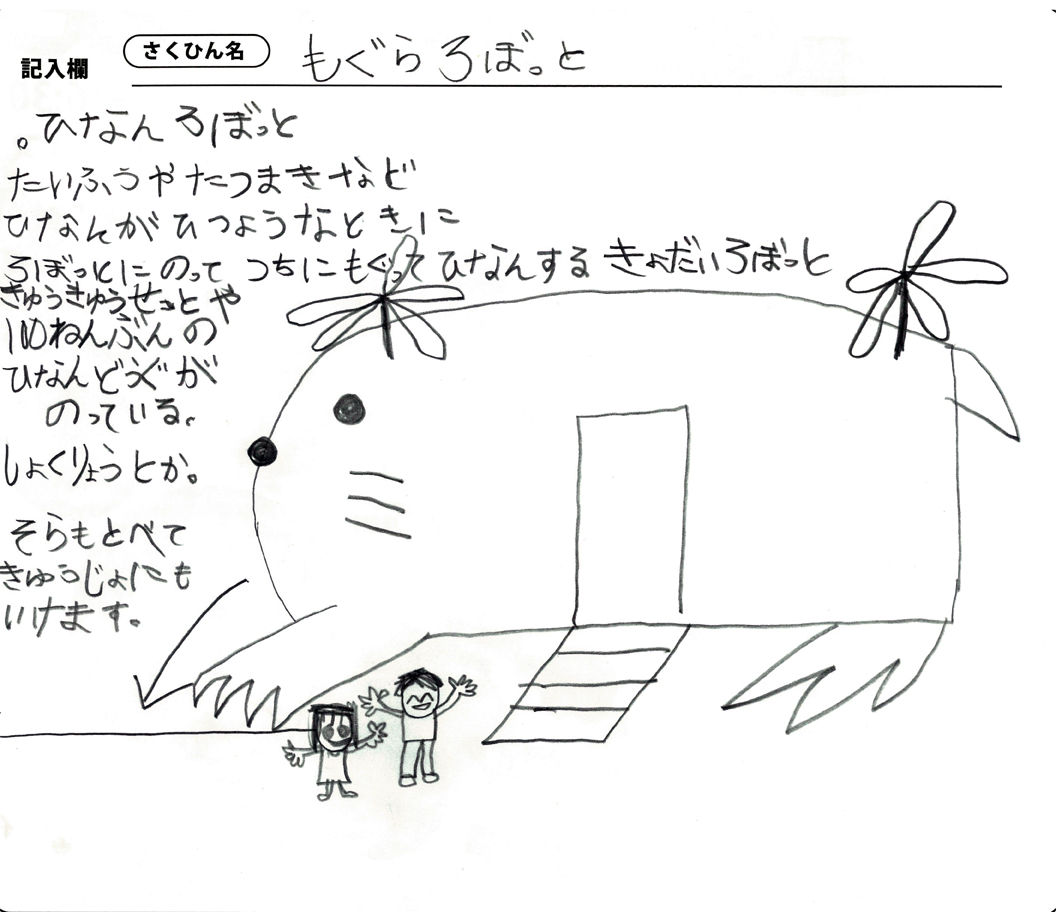 記入欄
さくひん名
もぐらろぼっと
。ひなんろぼっと
たいふうやたつまきなど
ひなんがひつようなときに
ろぼっとにのって つちにもぐってひなんする きょだいろぼっと
きゅうきゅうせっとや
100ねんぶんの
ひなんどうぐが
のっている。
しょくりょうとか。
そらもとべて
きゅうじょにも
いけます。